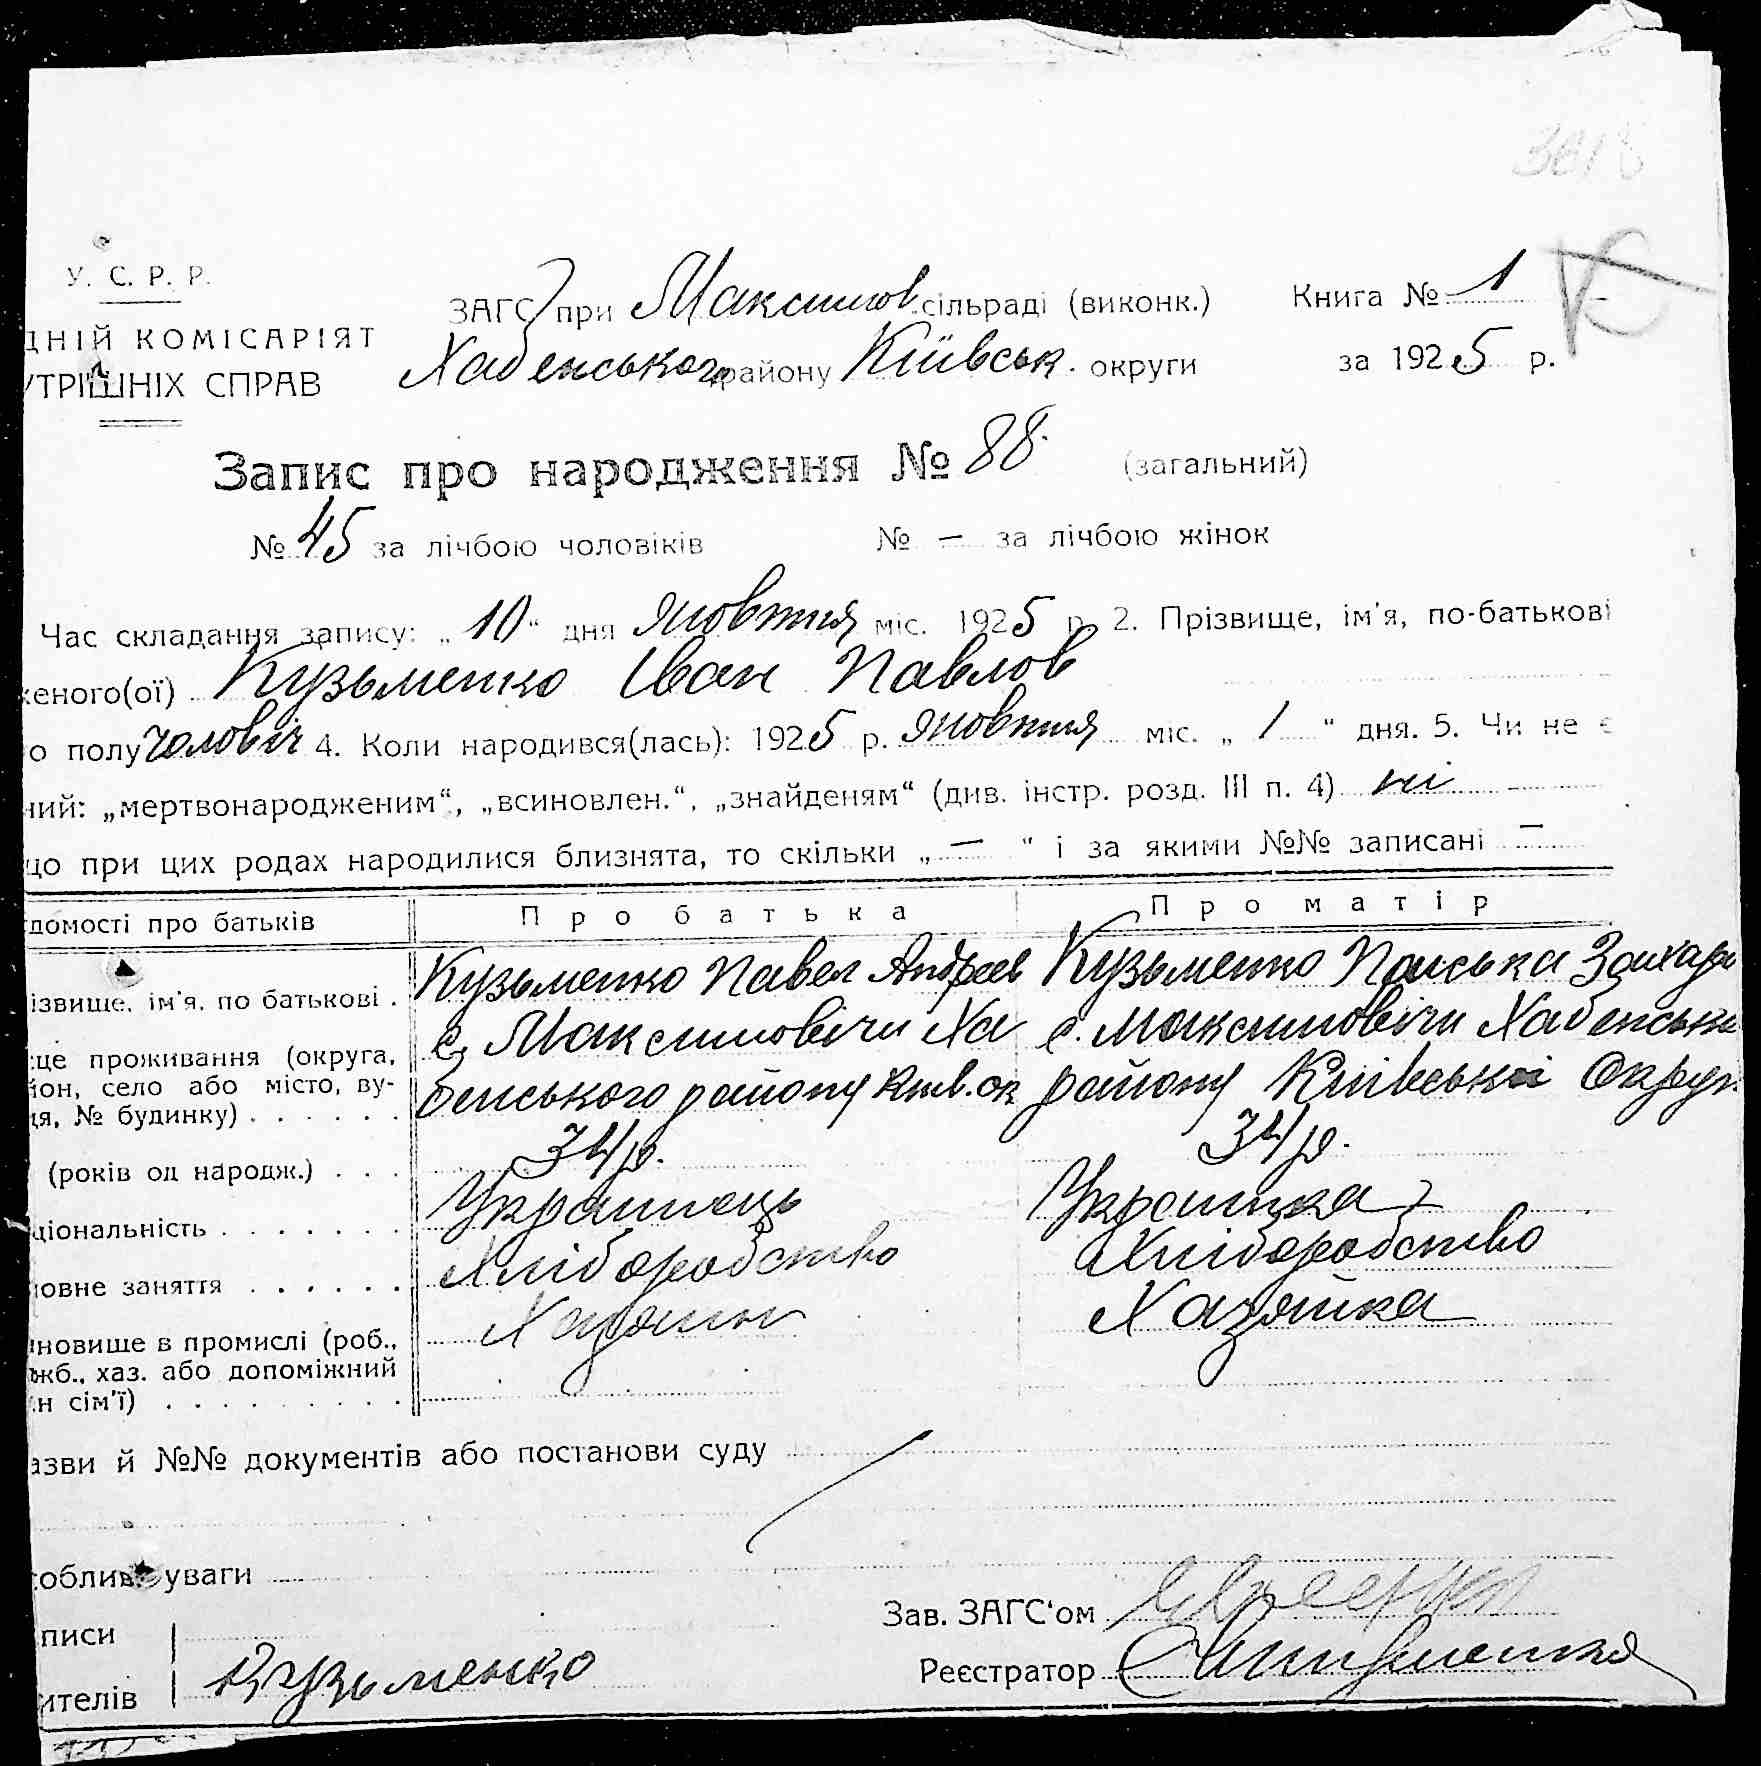 3018
У. С. Р. Р.
ЗАГС при Максимов. сільраді (виконк.) Книга № 1
ДНІЙ КОМІСАРІЯТ
УТРІШНІХ СПРАВ
Хабенського району Київськ. округи за 1925 р.
Запис про народження № 88. (загальний)
№ 45 за лічбою чоловіків № — за лічбою жінок
Час складання запису: „10“ дня жовтня міс. 1925 р. 2. Прізвище, ім'я, по-батькові
женого(ої) Кузьменко Іван Павлов
о полу чоловіч 4. Коли народився(лась): 1925 р. жовтня міс. „1“ дня. 5. Чи не є
ний: „мертвонародженим“, „всиновлен.“, „знайденям“ (див. інстр. розд. III п. 4) ні
що при цих родах народилися близнята, то скільки „—“ і за якими №№ записані —
домості про батьків Про батька Про матір
ізвище, ім'я, по батькові . Кузьменко Павел Андреев Кузьменко Паиська Захаров
це проживання (округа, с. Максимовичи Ха с. Максимовичи Хабенськ
йон, село або місто, ву-
ця, № будинку) . . . . . . бенського району Київ. ок району Київської Округи
(років од народж.) . . . 34 р. 34 р.
ціональність . . . . . . . Українець Українка
новне заняття . . . . . . Хліборобство Хліборобство
ановище в промислі (роб., Хазяин Хазяйка
жб., хаз. або допоміжний
н сім'ї) . . . . . . . . .
азви й №№ документів або постанови суду
соблив уваги
Зав. ЗАГС'ом
писи
ителів Кузьменко
Реєстратор